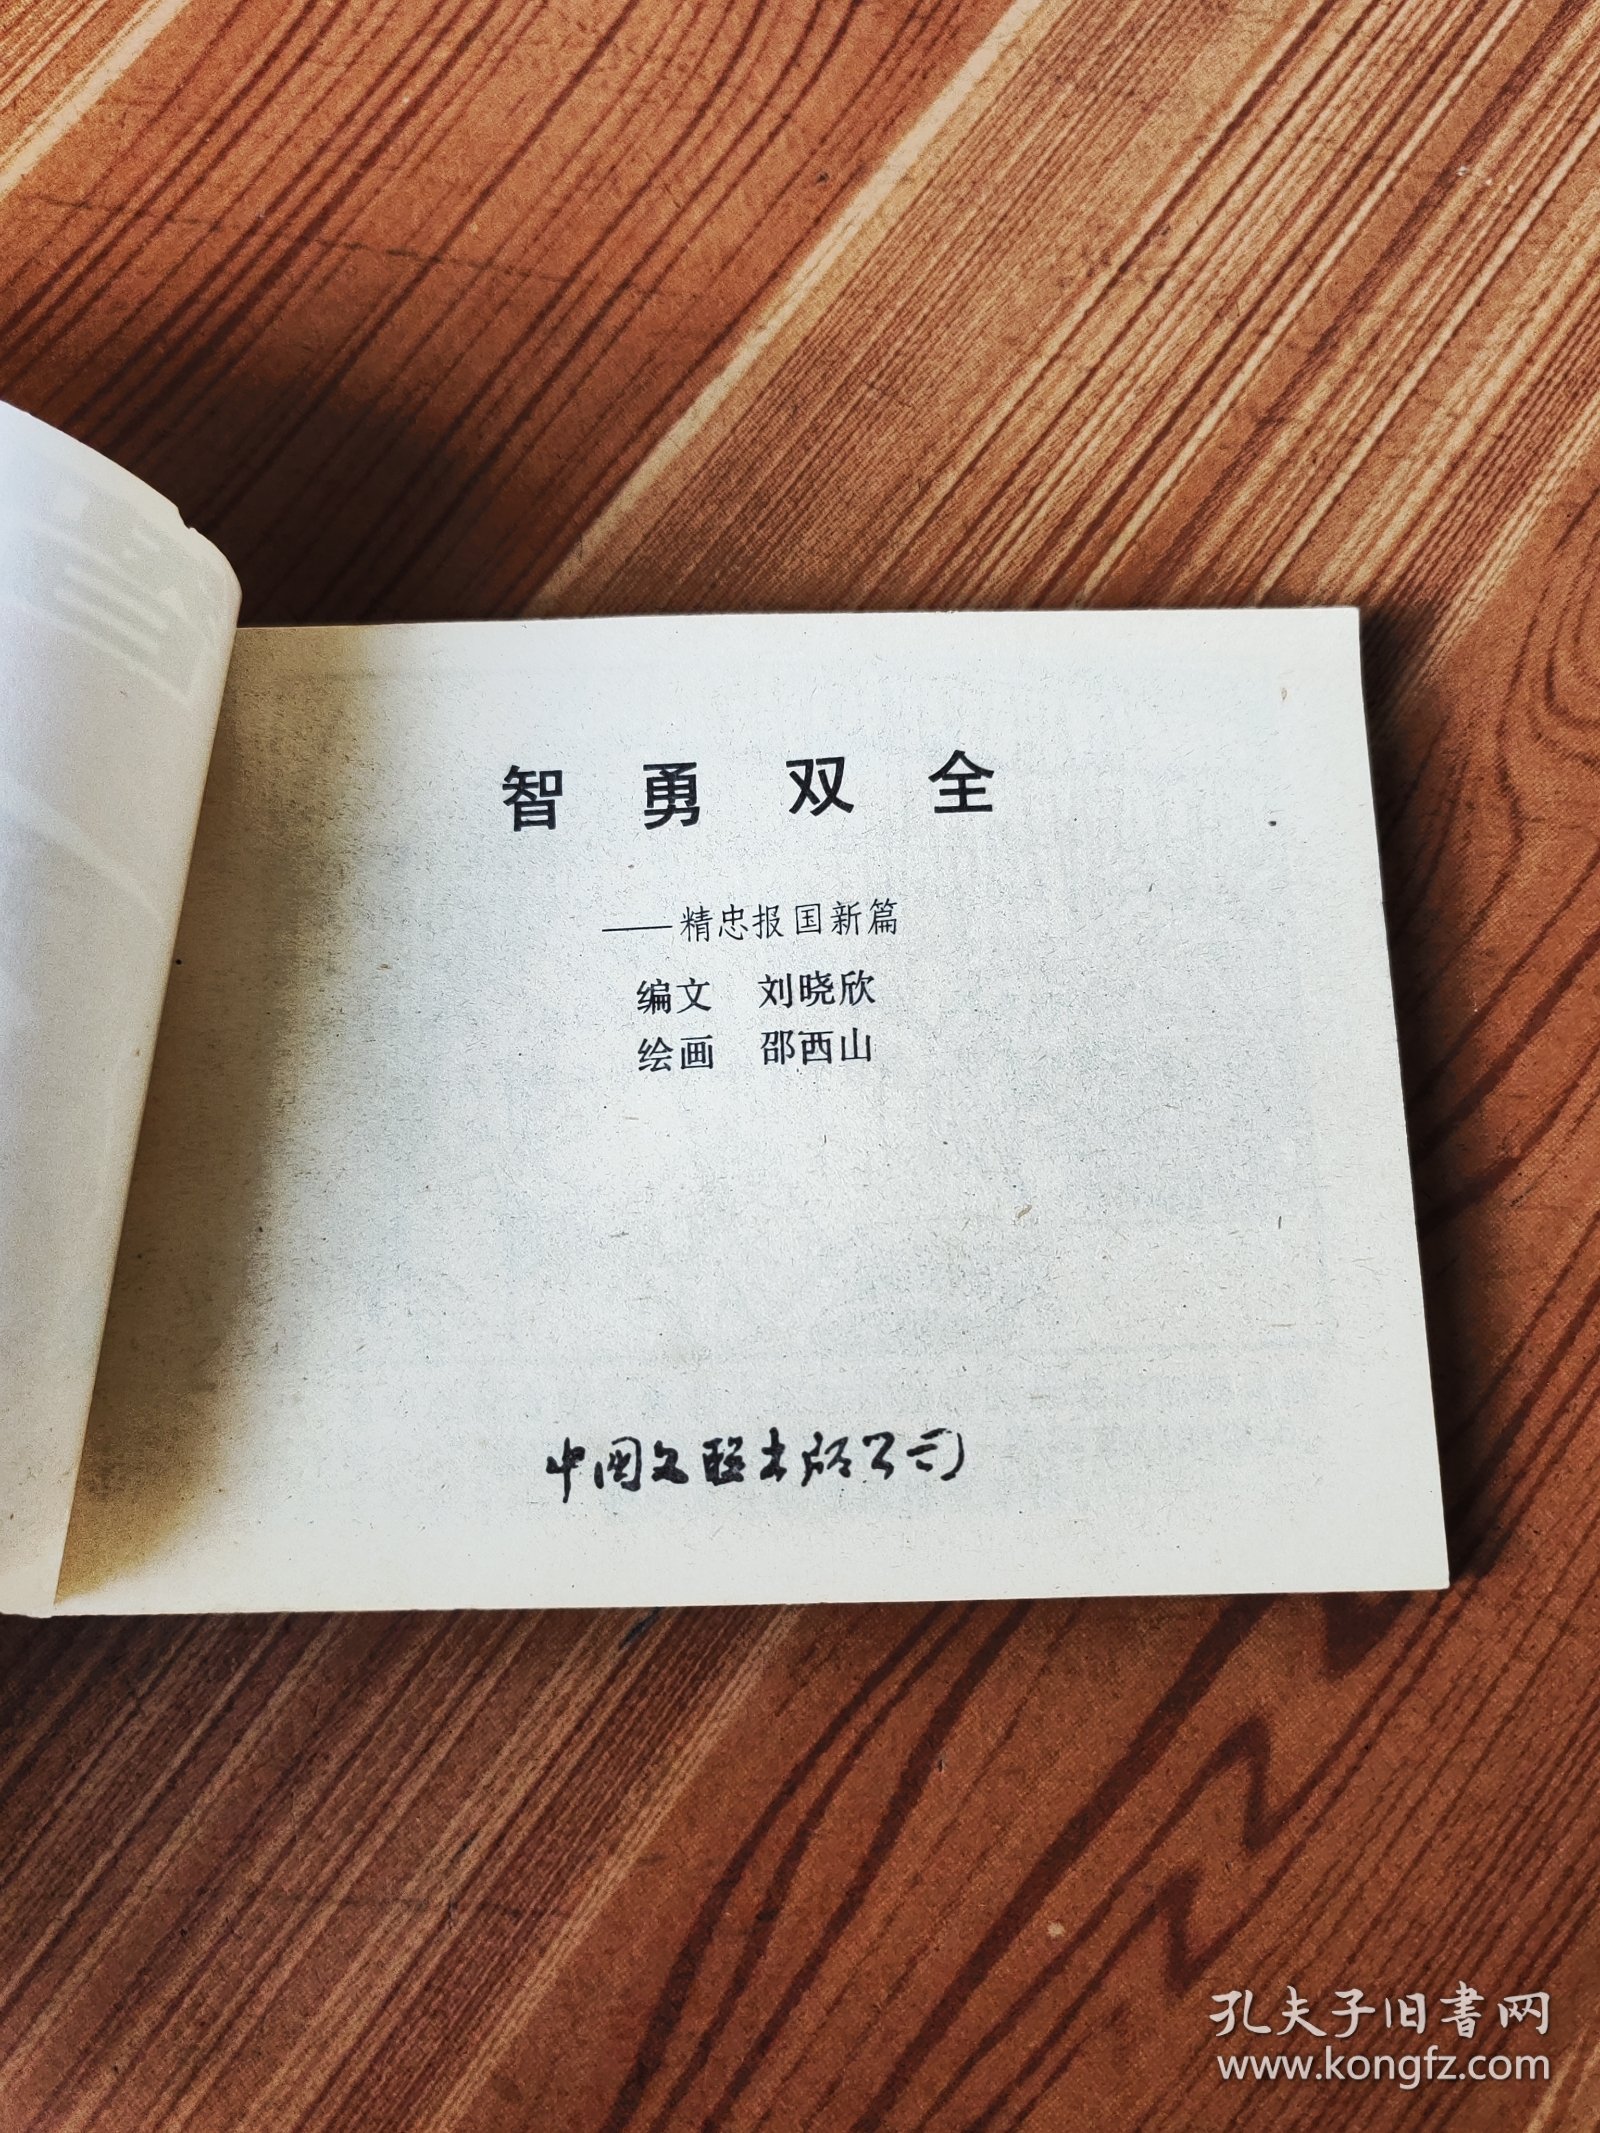 智勇双全
——精忠报国新篇
编文 刘晓欣
绘画 邵西山
中国文联出版公司
孔夫子旧書网
www.kongfz.com